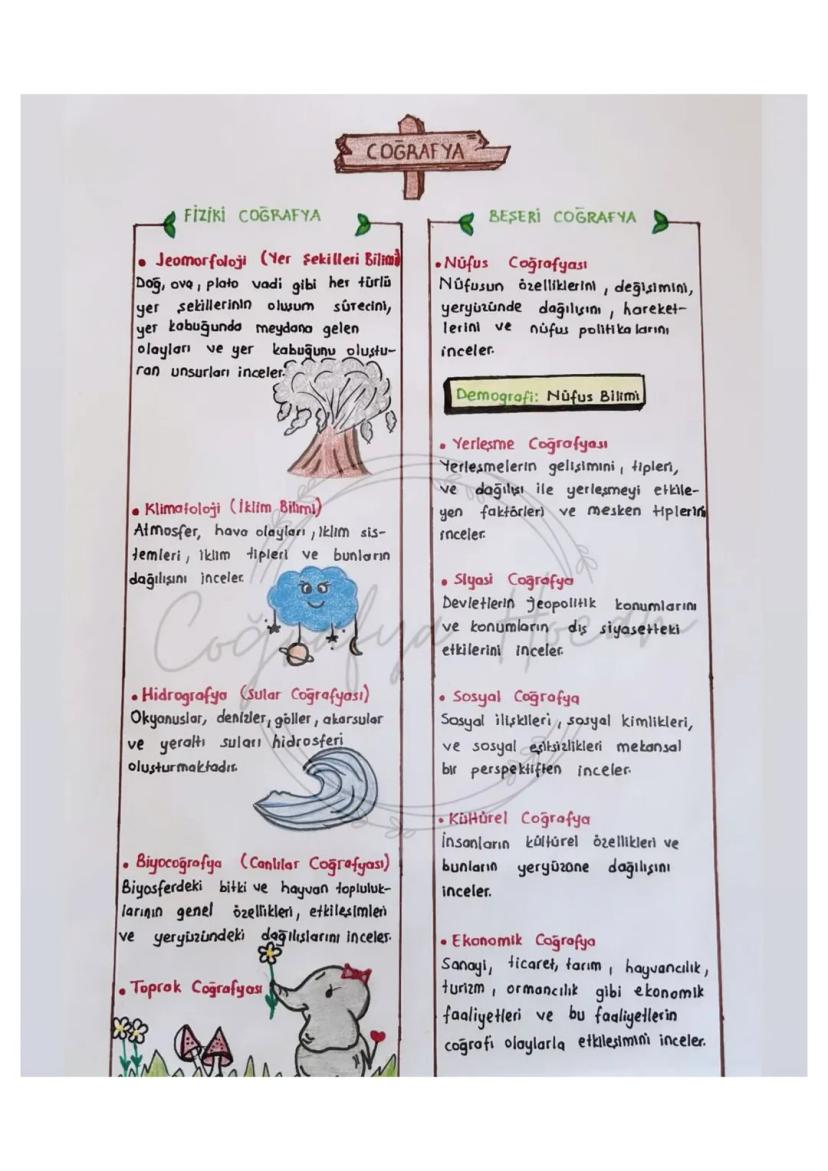 COĞRAFYA
FİZİKİ COĞRAFYA
• Jeomorfoloji (Yer Şekilleri Bilimi)
Dağ, ova, plato vadi gibi her türlü
yer şekillerinin oluşum sürecini,
yer kabuğunda meydana gelen
olayları ve yer kabuğunu oluştu-
ran unsurları inceler.
• Klimatoloji (İklim Bilimi)
Atmosfer, hava olayları, iklim sis-
temleri, iklim tipleri ve bunların
dağılışını inceler.
• Hidrografya (Sular Coğrafyası)
Okyanuslar, denizler, göller, akarsular
ve yeraltı suları hidrosferi
oluşturmaktadır.
• Biyocoğrafya (Canlılar Coğrafyası)
Biyosferdeki bitki ve hayvan topluluk-
larının genel özellikleri, etkileşimleri
ve yeryüzündeki dağılışlarını inceler.
• Toprak Coğrafyası
BEŞERİ COĞRAFYA
• Nüfus Coğrafyası
Nüfusun özelliklerini, değişimini,
yeryüzünde dağılışını, hareket-
lerini ve nüfus politikalarını
inceler.
Demografi: Nüfus Bilimi
• Yerleşme Coğrafyası
Yerleşmelerin gelişimini, tipleri,
ve dağılışı ile yerleşmeyi etkile-
yen faktörleri ve mesken tiplerini
inceler.
• Siyasi Coğrafya
Devletlerin jeopolitik konumlarını
ve konumların dış siyasetteki
etkilerini inceler.
• Sosyal Coğrafya
Sosyal ilişkileri, sosyal kimlikleri,
ve sosyal eşiksizlikleri mekansal
bir perspektiften inceler.
• Kültürel Coğrafya
İnsanların kültürel özellikleri ve
bunların yeryüzüne dağılışını
inceler.
• Ekonomik Coğrafya
Sanayi, ticaret, tarım, hayvancılık,
turizm, ormancılık gibi ekonomik
faaliyetleri ve bu faaliyetlerin
coğrafi olaylarla etkileşimini inceler.
Coğrafya Hocan